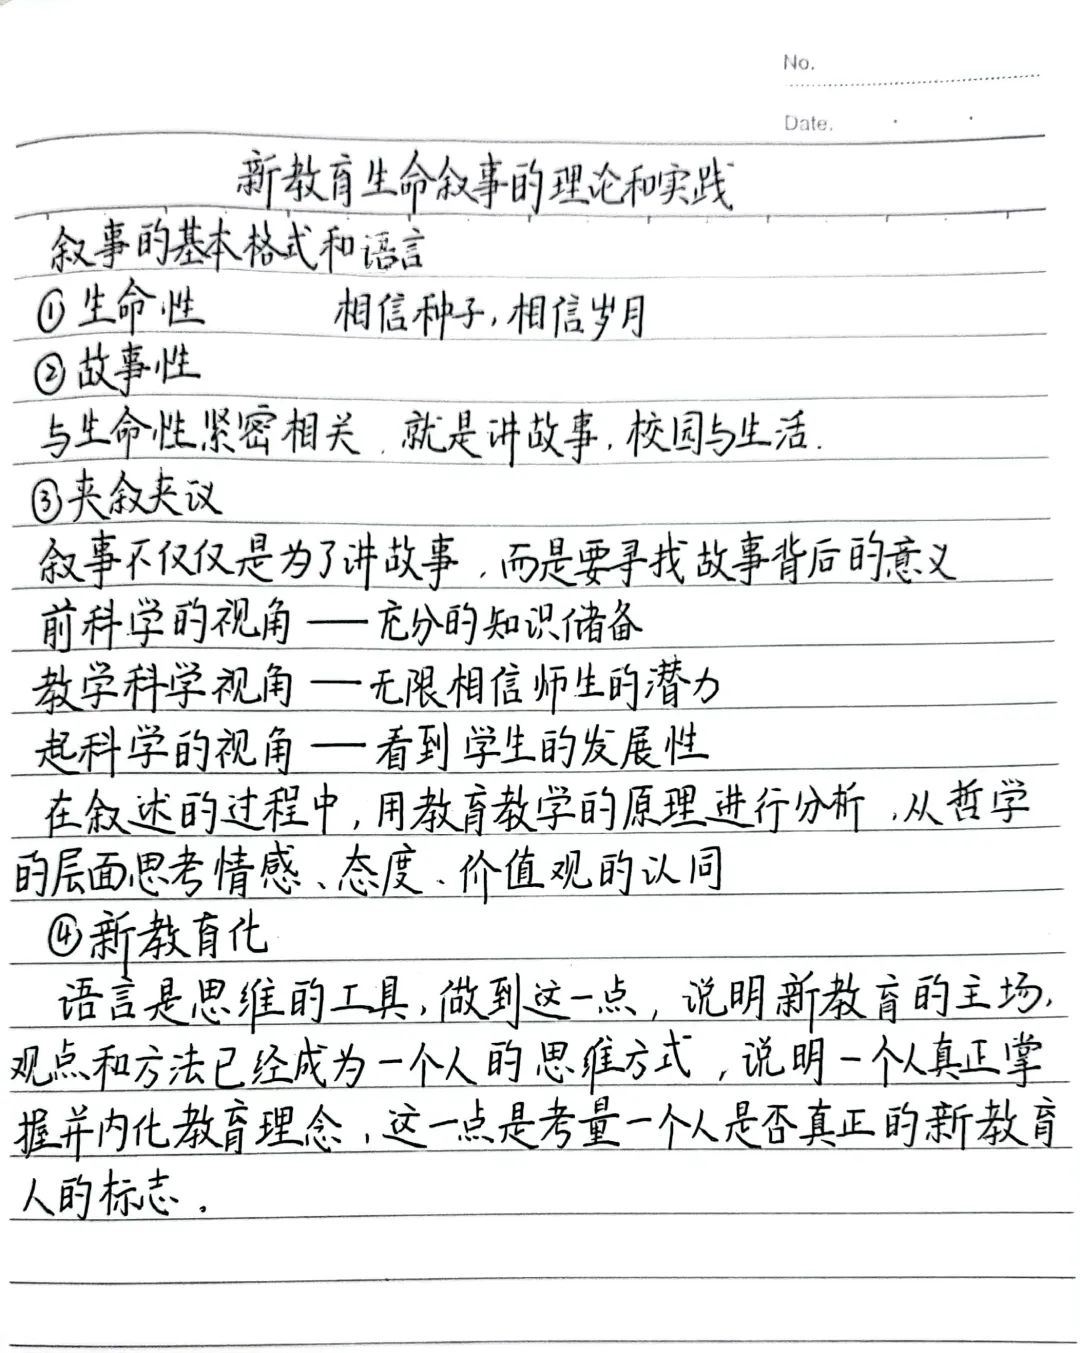 No.
Date.
新教育生命叙事的理论和实践
叙事的基本格式和语言
①生命性 相信种子,相信岁月
②故事性
与生命性紧密相关,就是讲故事,校园与生活.
③夹叙夹议
叙事不仅仅是为了讲故事,而是要寻找故事背后的意义
前科学的视角——充分的知识储备
教学科学视角——无限相信师生的潜力
起科学的视角——看到学生的发展性
在叙述的过程中,用教育教学的原理进行分析,从哲学
的层面思考情感、态度、价值观的认同
④新教育化
语言是思维的工具,做到这一点,说明新教育的主场,
观点和方法已经成为一个人的思维方式,说明一个人真正掌
握并内化教育理念,这一点是考量一个人是否真正的新教育
人的标志。